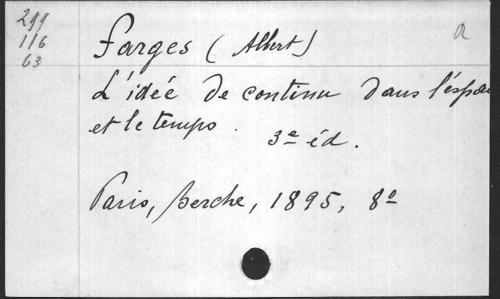 299
116
63
Farges (Albert)
a
L'idée de continu dans l'espace
et le temps.
3e éd.
Paris, Berche, 1895, 8o